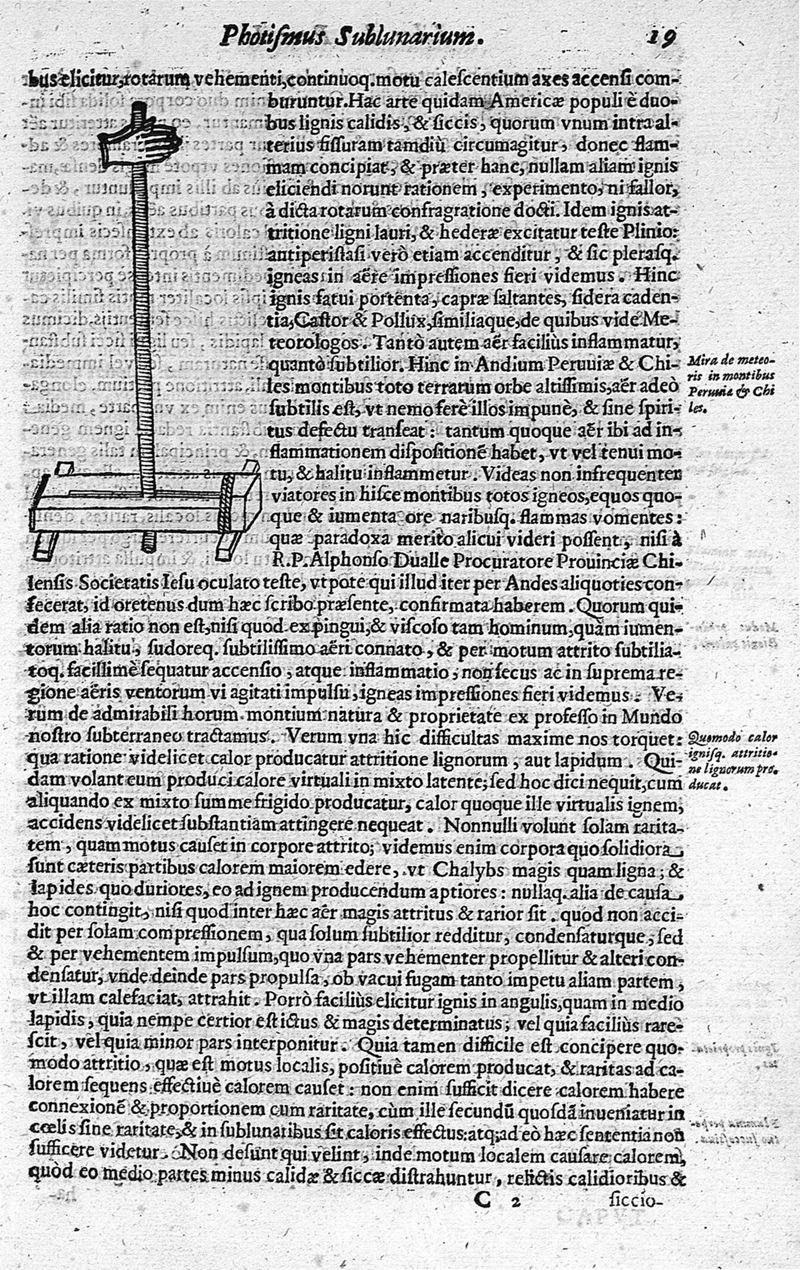 Photismus Sublunarium. 19
bus elicitur, rotarum vehementi, continuoq. motu calescentium axes accensi com-
buruntur. Hac arte quidam Americæ populi è duo-
bus lignis calidis, & siccis, quorum vnum intra al-
terius fissuram tamdiù circumagitur, donec flam-
mam concipiat, & præter hanc, nullam aliam ignis
eliciendi norunt rationem, experimento, ni fallor,
à dicta rotarum confragratione docti. Idem ignis at-
tritione ligni lauri, & hederæ excitatur teste Plinio:
antiperistasi verò etiam accenditur, & sic plerasq.
igneas in aëre impressiones fieri videmus. Hinc
ignis fatui portenta, capræ saltantes, sidera caden-
tia, Castor & Pollux, similiaque, de quibus vide Me-
teorologos. Tantò autem aër faciliùs inflammatur,
quantò subtilior. Hinc in Andium Peruuiæ & Chi-
les montibus toto terrarum orbe altissimis, aër adeò
subtilis est, vt nemo ferè illos impunè, & sine spiri-
tus defectu transeat: tantum quoque aër ibi ad in-
flammationem dispositionē habet, vt vel tenui mo-
tu, & halitu inflammetur. Videas non infrequenter
viatores in hisce montibus totos igneos, equos quo-
que & iumenta ore naribusq. flammas vomentes:
quæ paradoxa merito alicui videri possent, nisi à
R.P. Alphonso Dualle Procuratore Prouinciæ Chi-
lensis Societatis Iesu oculato teste, vt pote qui illud iter per Andes aliquoties con-
fecerat, id oretenus dum hæc scribo præsente, confirmata haberem. Quorum qui-
dem alia ratio non est, nisi quod ex pingui, & viscoso tam hominum, quàm iumen-
torum halitu, sudoreq. subtilissimo aëri connato, & per motum attrito subtilia-
toq. facillimè sequatur accensio, atque inflammatio, non secus ac in suprema re-
gione aëris ventorum vi agitati impulsu, igneas impressiones fieri videmus. Ve-
rum de admirabili horum montium natura & proprietate ex professo in Mundo
nostro subterraneo tractamus. Verum vna hic difficultas maxime nos torquet:
qua ratione videlicet calor producatur attritione lignorum, aut lapidum. Qui-
dam volant eum produci calore virtuali in mixto latente; sed hoc dici nequit, cum
aliquando ex mixto summe frigido producatur, calor quoque ille virtualis ignem,
accidens videlicet substantiam attingere nequeat. Nonnulli volunt solam rarita-
tem, quam motus causet in corpore attrito; videmus enim corpora quo solidiora
sunt cæteris partibus calorem maiorem edere, vt Chalybs magis quam ligna; &
lapides quo duriores, eo ad ignem producendum aptiores: nullaq. alia de causa
hoc contingit, nisi quod inter hæc aër magis attritus & rarior sit. quod non acci-
dit per solam compressionem, qua solum subtilior redditur, condensaturque, sed
& per vehementem impulsum, quo vna pars vehementer propellitur & alteri con-
densatur, vnde deinde pars propulsa, ob vacui fugam tanto impetu aliam partem,
vt illam calefaciat, attrahit. Porrò faciliùs elicitur ignis in angulis, quam in medio
lapidis, quia nempe certior est ictus & magis determinatus; vel quia faciliùs rare-
scit, vel quia minor pars interponitur. Quia tamen difficile est concipere quo-
modo attritio, quæ est motus localis, positiuè calorem producat, & raritas ad ca-
lorem sequens effectiuè calorem causet: non enim sufficit dicere calorem habere
connexionē & proportionem cum raritate, cùm ille secundū quosdā inueniatur in
cœlis sine raritate, & in sublunaribus sit caloris effectus: atq; ad eò hæc sententia non
sufficere videtur. Non desunt qui velint, inde motum localem causare calorem,
quòd eo medio partes minus calidæ & siccæ distrahuntur, relictis calidioribus &
C 2 siccio-
Mira de meteo-
ris in montibus
Peruuiæ & Chi
les.
Quomodo calor
ignisq. attritio-
ne lignorum pro-
ducat.